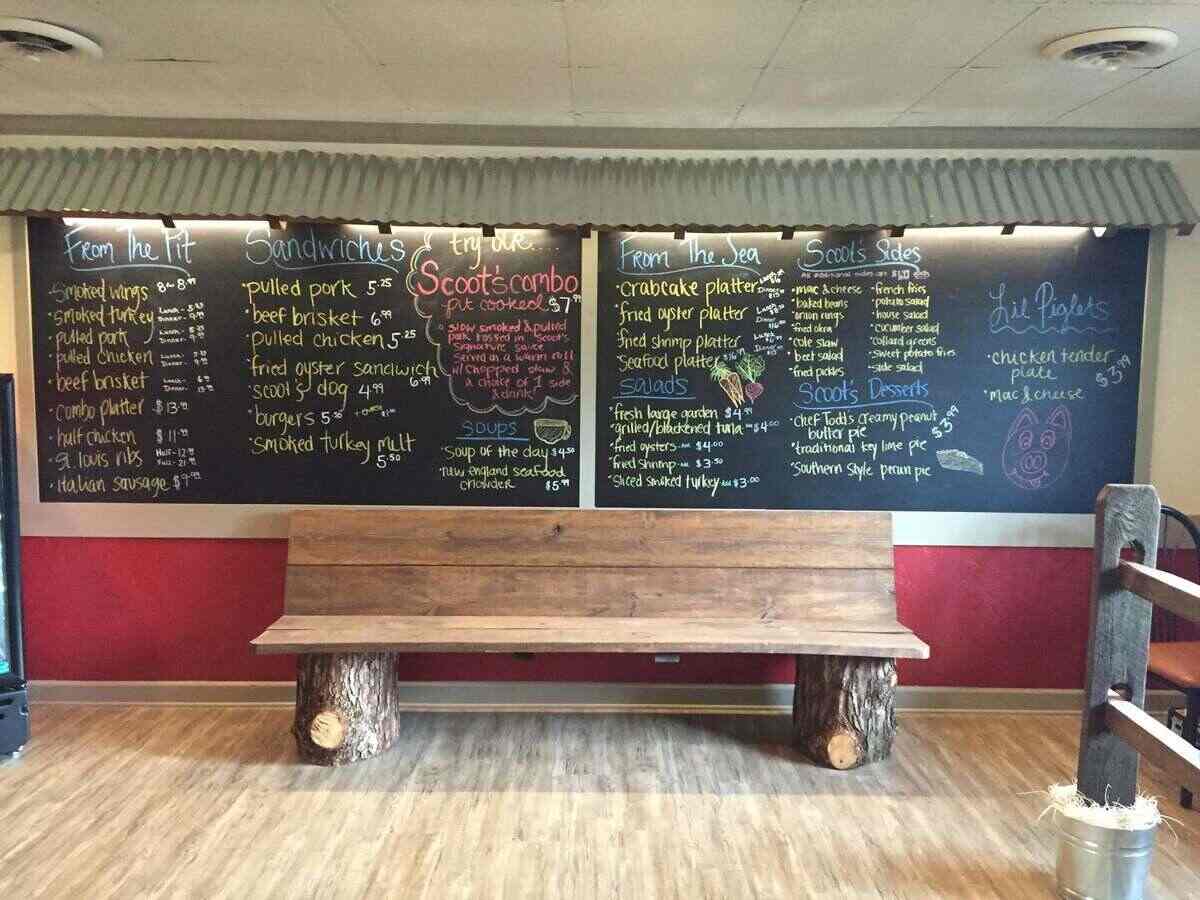 From The Pit
smoked wings 8-8.99
smoked turkey Lunch- Dinner-
pulled pork Lunch- Dinner-
pulled chicken Lunch- Dinner-
beef brisket Lunch- Dinner-
combo platter $13.99
half chicken $11.99
St. Louis ribs Half- Full-
italian sausage
Sandwiches
pulled pork 5.25
beef brisket 6.99
pulled chicken 5.25
fried oyster sandwich
6.99
scoot's dog 4.99
burgers
smoked turkey mult
5.50
try our....
Scoot's combo
pit cooked $7.99
slow smoked & pulled
pork tossed in Scoot's
signature sauce
served on a warm roll
w/ chopped slaw &
a choice of 1 side
& drink!
Soups
soup of the day $4.50
new england seafood
chowder $5.99
From The Sea
crabcake platter Lunch Dinner
fried oyster platter Lunch Dinner
fried shrimp platter Lunch Dinner
Seafood platter
Salads
fresh large garden $4.99
grilled/blackened tuna $4.00
fried oysters $4.00
fried shrimp $3.50
sliced smoked turkey $3.00
Scoot's Sides
All additional sides are
mac & cheese
baked beans
onion rings
fried okra
cole slaw
beet salad
fried pickles
french fries
potato salad
house salad
cucumber salad
collard greens
sweet potato fries
side salad
Scoot's Desserts
Chef Todd's creamy peanut
butter pie
traditional key lime pie
Southern Style pecan pie
$3.99
Lil Piglets
chicken tender
plate
mac & cheese
$3.99